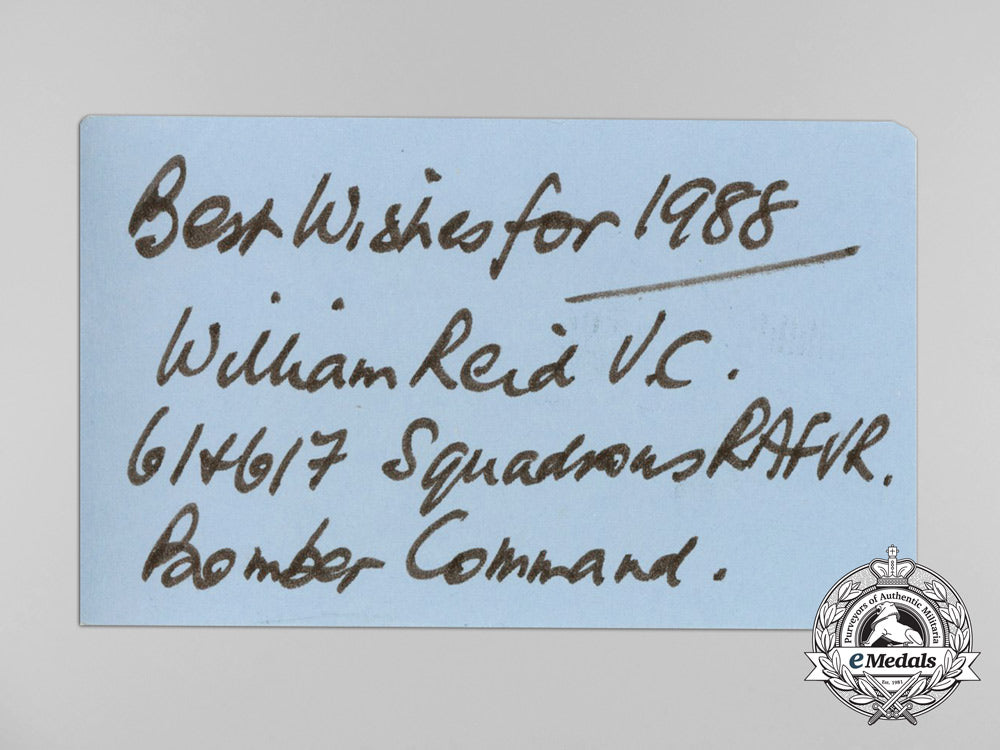 Best Wishes for 1988
William Reid V.C.
61+617 Squadrons RAFVR.
Bomber Command.
Purveyors of Authentic Militaria
eMedals
Est. 1981